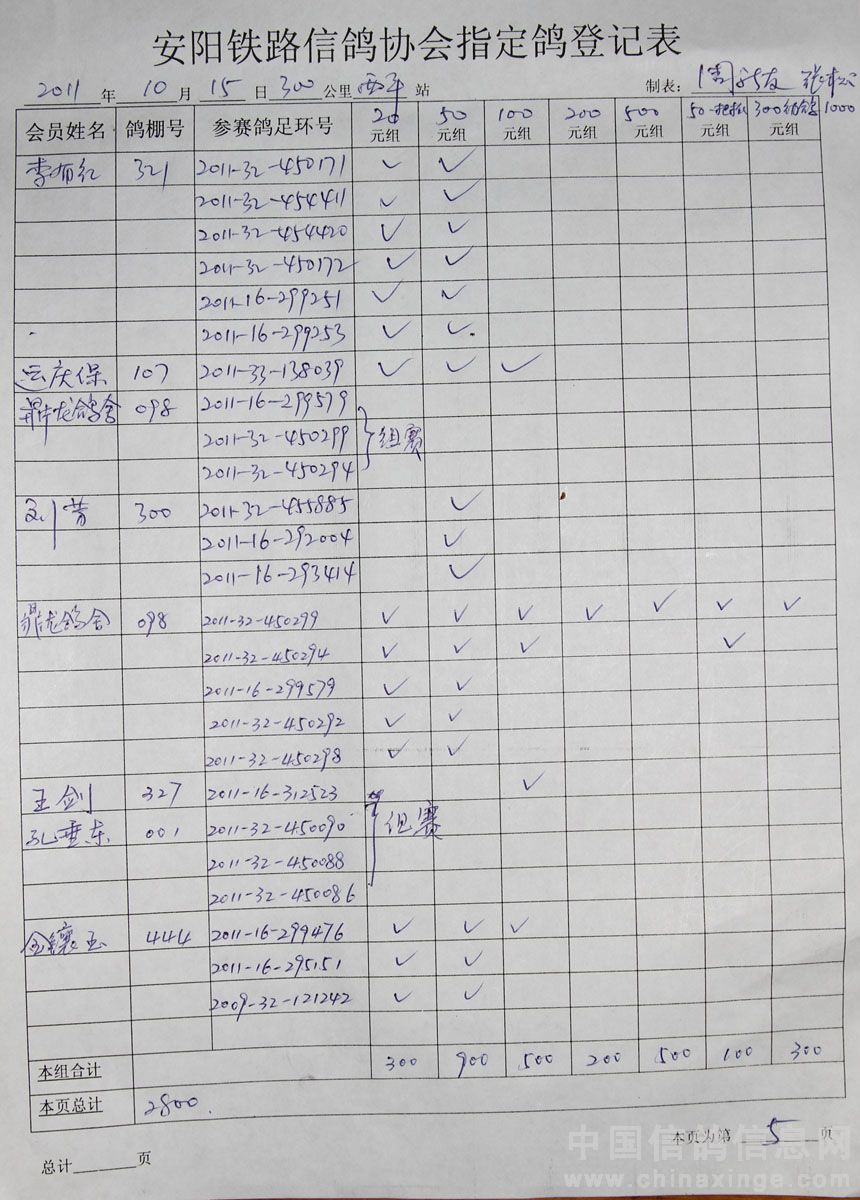 安阳铁路信鸽协会指定鸽登记表
2011 年 10 月 15 日 300 公里 西平 站 制表:
会员姓名 鸽棚号 参赛鸽足环号 20元组 50元组 100元组 200元组 500元组 50一把抓元组 300 元组 1000
李有红 321 2011-32-450171 ✓ ✓
2011-32-454411 ✓ ✓
2011-32-454420 ✓ ✓
2011-32-450172 ✓ ✓
2011-16-299251 ✓ ✓
2011-16-299253 ✓ ✓
运庆保 107 2011-33-138039 ✓ ✓ ✓
鼎龙鸽舍 098 2011-16-299579
2011-32-450299 } 组赛
2011-32-450294
300 2011-32-455885 ✓
2011-16-292004 ✓
2011-16-293414 ✓
鼎龙鸽舍 098 2011-32-450299 ✓ ✓ ✓ ✓ ✓ ✓ ✓
2011-32-450294 ✓ ✓ ✓ ✓
2011-16-299579 ✓ ✓
2011-32-450292 ✓ ✓
2011-32-450298 ✓ ✓
王剑 327 2011-16-312523 ✓
孔垂东 001 2011-32-450090 } 组赛
2011-32-450088
2011-32-450086
金镶玉 444 2011-16-299476 ✓ ✓ ✓
2011-16-295151 ✓ ✓
2009-32-121242 ✓ ✓
本组合计 300 900 500 200 500 100 300
本页总计 2800.
本页为第 5 页
总计 页
中国信鸽信息网
www.chinaxinge.com